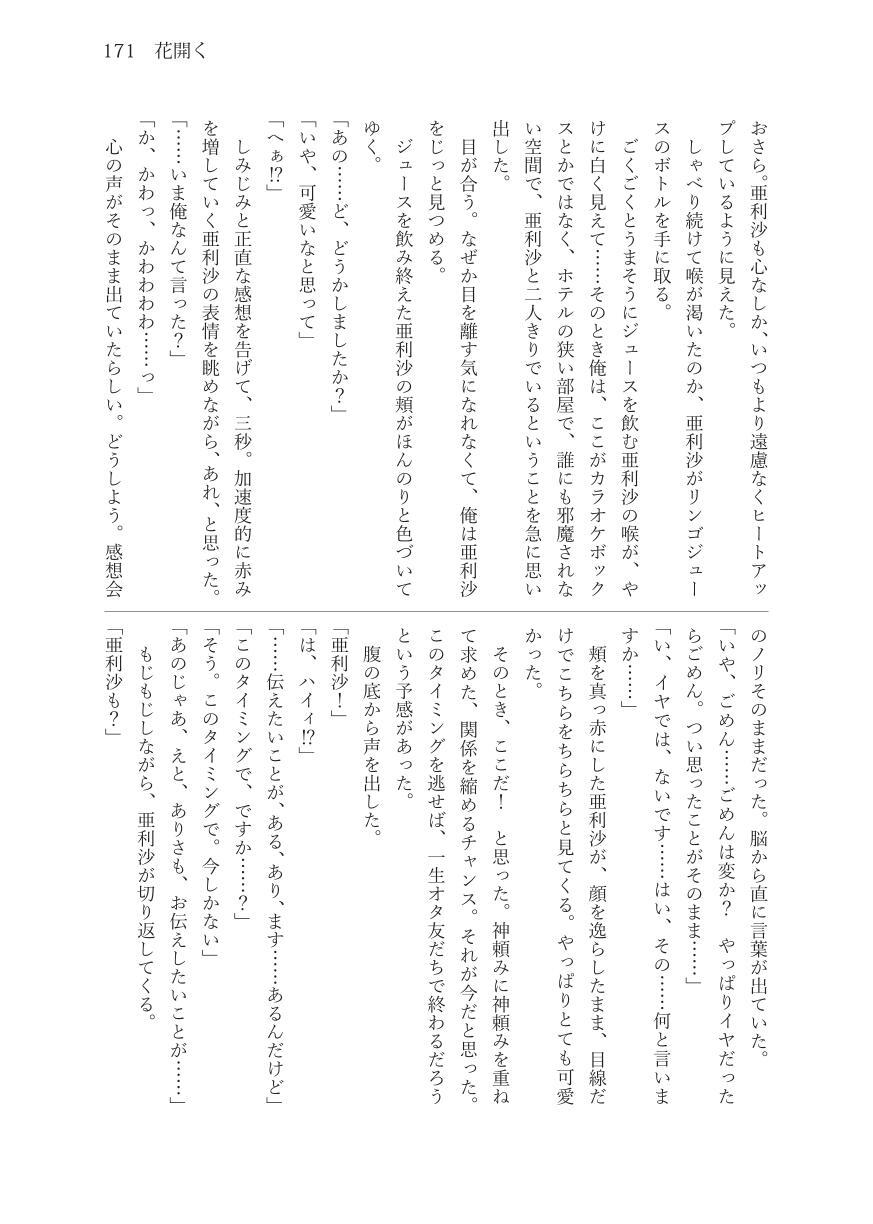 171　花開く
おさら。亜利沙も心なしか、いつもより遠慮なくヒートアッ
プしているように見えた。
　しゃべり続けて喉が渇いたのか、亜利沙がリンゴジュー
スのボトルを手に取る。
　ごくごくとうまそうにジュースを飲む亜利沙の喉が、や
けに白く見えて……そのとき俺は、ここがカラオケボック
スとかではなく、ホテルの狭い部屋で、誰にも邪魔されな
い空間で、亜利沙と二人きりでいるということを急に思い
出した。
　目が合う。なぜか目を離す気になれなくて、俺は亜利沙
をじっと見つめる。
　ジュースを飲み終えた亜利沙の頬がほんのりと色づいて
ゆく。
「あの……ど、どうかしましたか？」
「いや、可愛いなと思って」
「へぁ⁉」
　しみじみと正直な感想を告げて、三秒。加速度的に赤み
を増していく亜利沙の表情を眺めながら、あれ、と思った。
「……いま俺なんて言った？」
「か、かわっ、かわわわわ……っ」
　心の声がそのまま出ていたらしい。どうしよう。感想会
のノリそのままだった。脳から直に言葉が出ていた。
「いや、ごめん……ごめんは変か？　やっぱりイヤだった
らごめん。つい思ったことがそのまま……」
「い、イヤでは、ないです……はい、その……何と言いま
すか……」
　頬を真っ赤にした亜利沙が、顔を逸らしたまま、目線だ
けでこちらをちらちらと見てくる。やっぱりとても可愛
かった。
　そのとき、ここだ！　と思った。神頼みに神頼みを重ね
て求めた、関係を縮めるチャンス。それが今だと思った。
このタイミングを逃せば、一生オタ友だちで終わるだろう
という予感があった。
　腹の底から声を出した。
「亜利沙！」
「は、ハイィ⁉」
「……伝えたいことが、ある、あり、ます……あるんだけど」
「このタイミングで、ですか……？」
「そう。このタイミングで。今しかない」
「あのじゃあ、えと、ありさも、お伝えしたいことが……」
　もじもじしながら、亜利沙が切り返してくる。
「亜利沙も？」